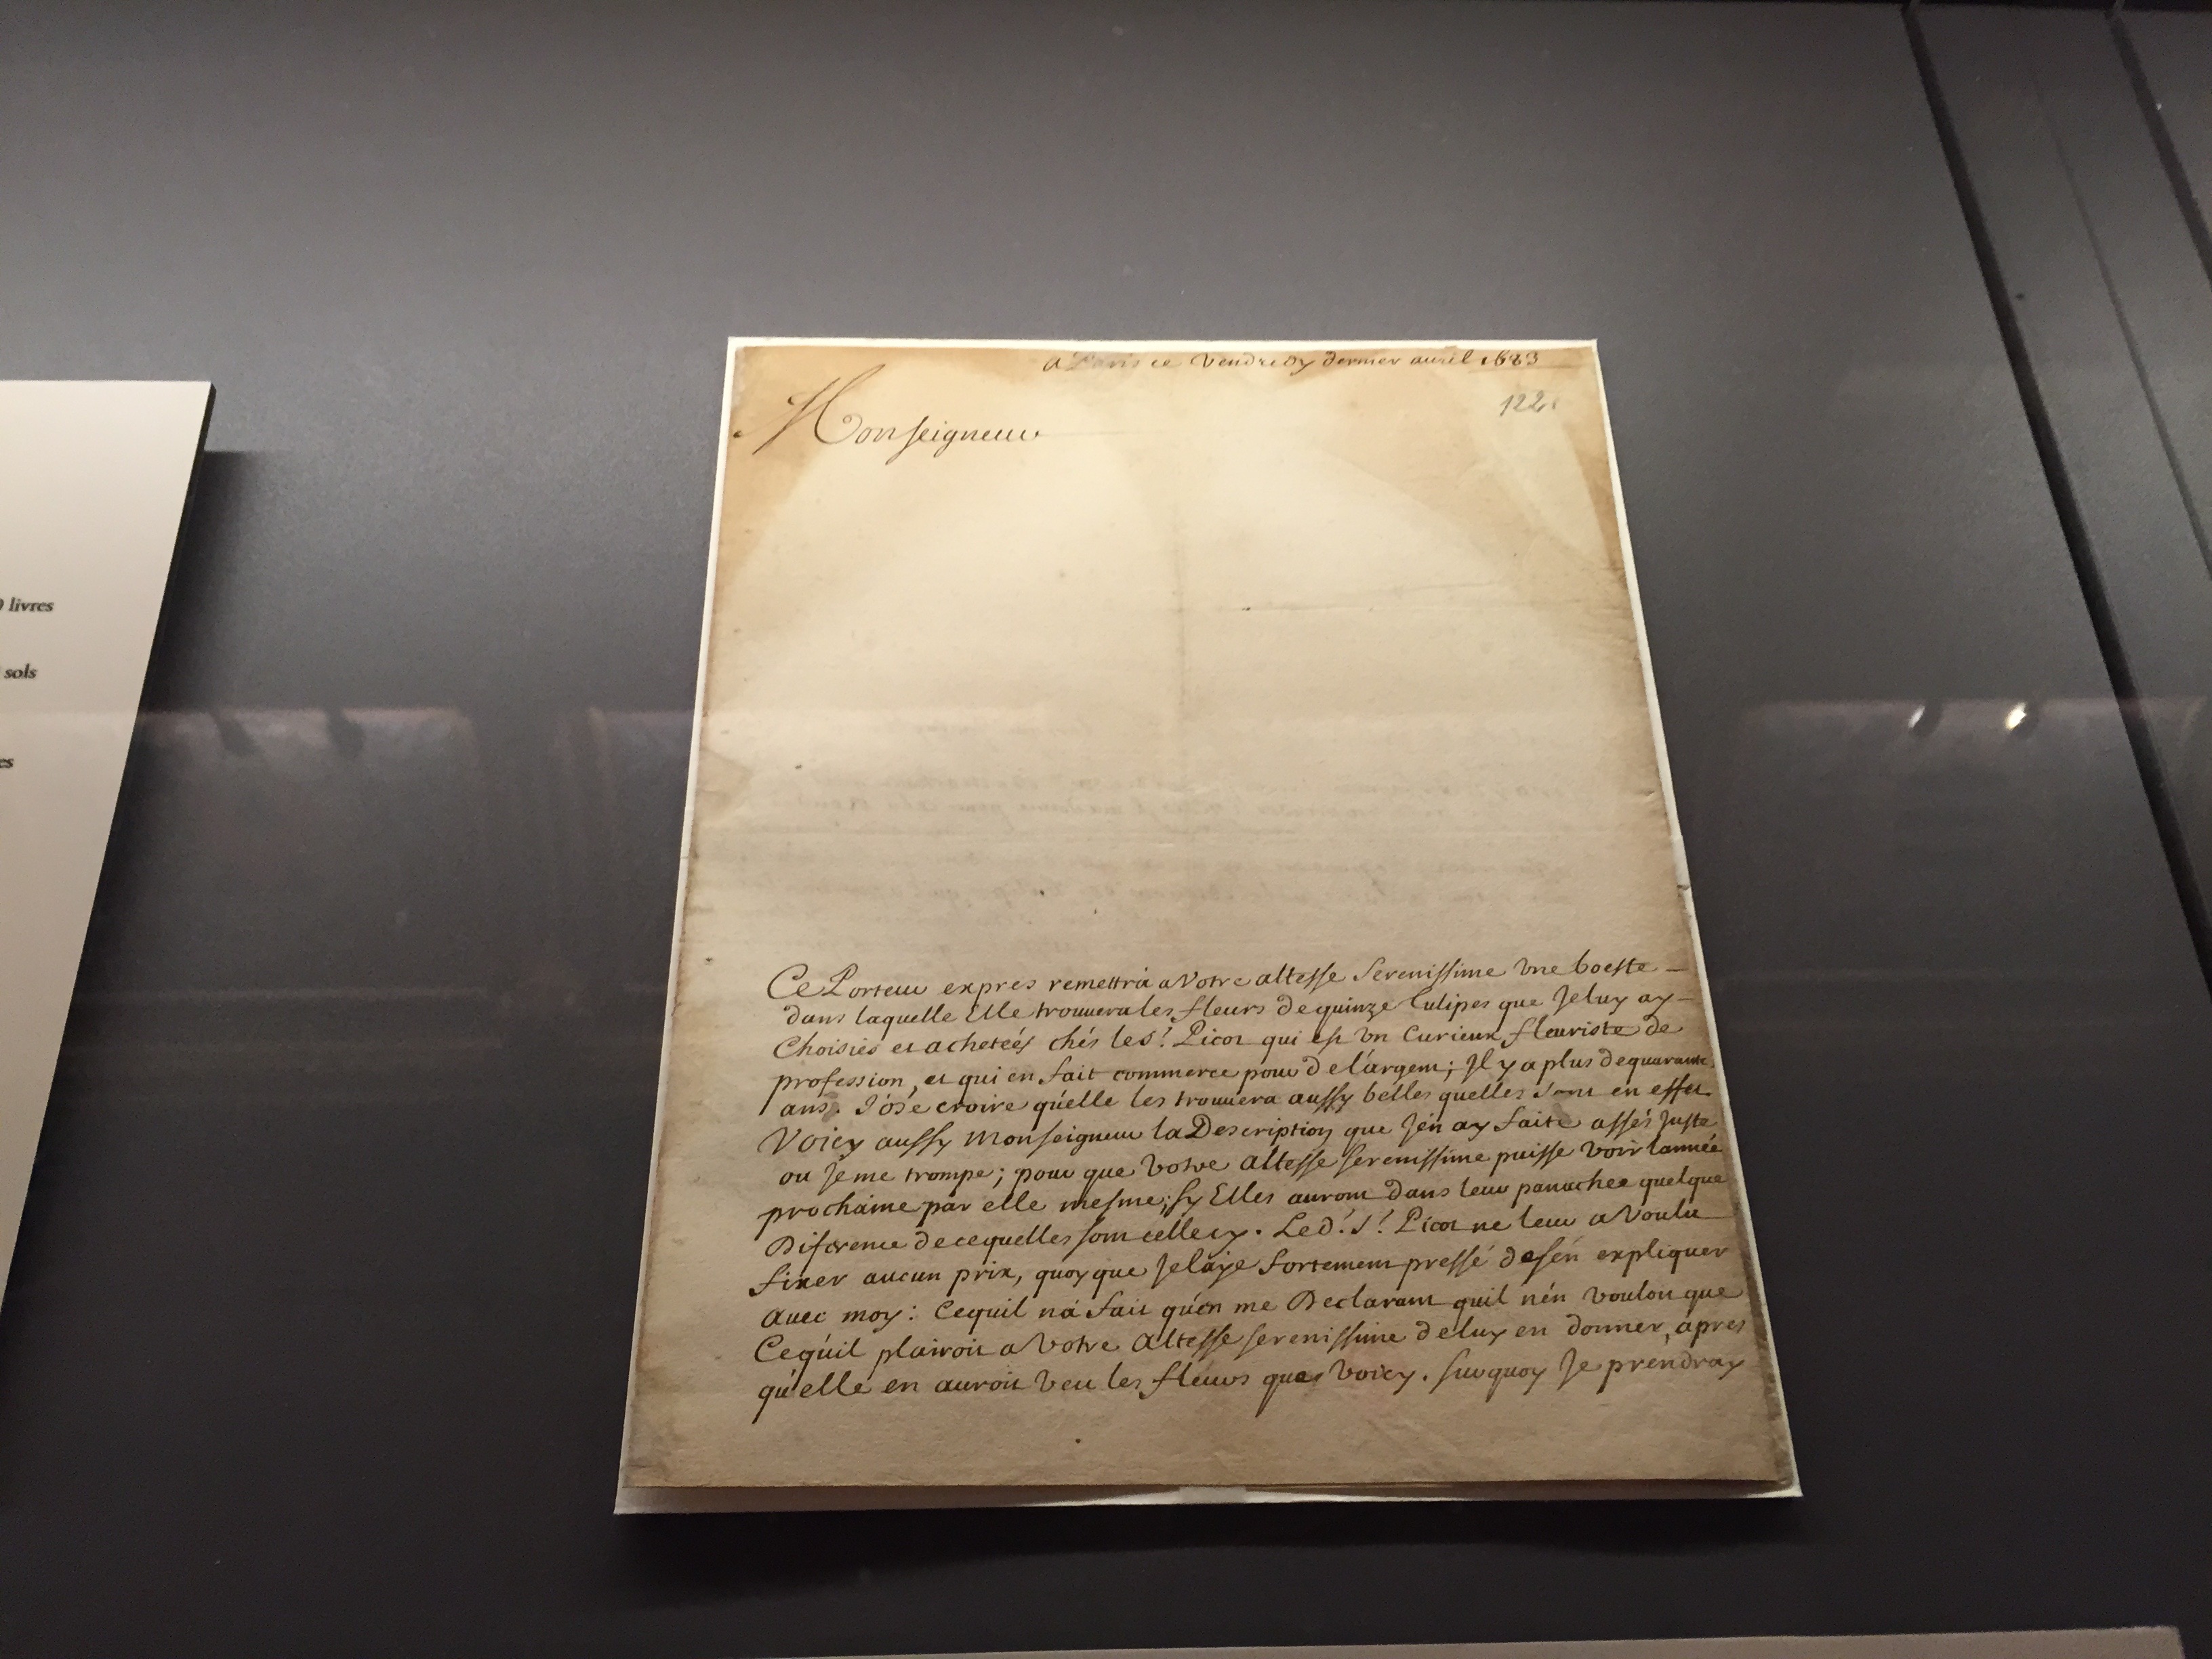 livres
sols
es
a Paris ce Vendredy dernier auril 1683
122
Monseigneur
Ce Porteur expres remettra a Votre altesse Serenissime Vne boeste
dans laquelle Elle trouuera les fleurs de quinze tulipes que Je luy ay
Choisies et acheteés chés le S.r Picot qui est Vn Curieux fleuriste de
profession, et qui en fait commerce pour de l'argent; Il y a plus de quarante
ans. J'ose croire qu'elle les trouuera aussy belles quelles sont en effet
Voicy aussy Monseigneur la Description que J'en ay faite assés Juste
ou Je me trompe; pour que Votre Altesse serenissime puisse voir lannée
prochaine par elle mesme; sy Elles auront dans leur panachee quelque
Diference de ce quelles sont celle cy. Led.t S.r Picot ne leur a Voulu
fixer aucun prix, quoy que Je l'aye fortement pressé de s'en expliquer
auec moy: Ce quil n'a fait qu'en me Declarant quil n'en vouloit que
Ce qu'il plairoit a Votre Altesse serenissime de luy en donner, apres
qu'elle en auroit veu les fleurs que voicy. sur quoy Je prendray